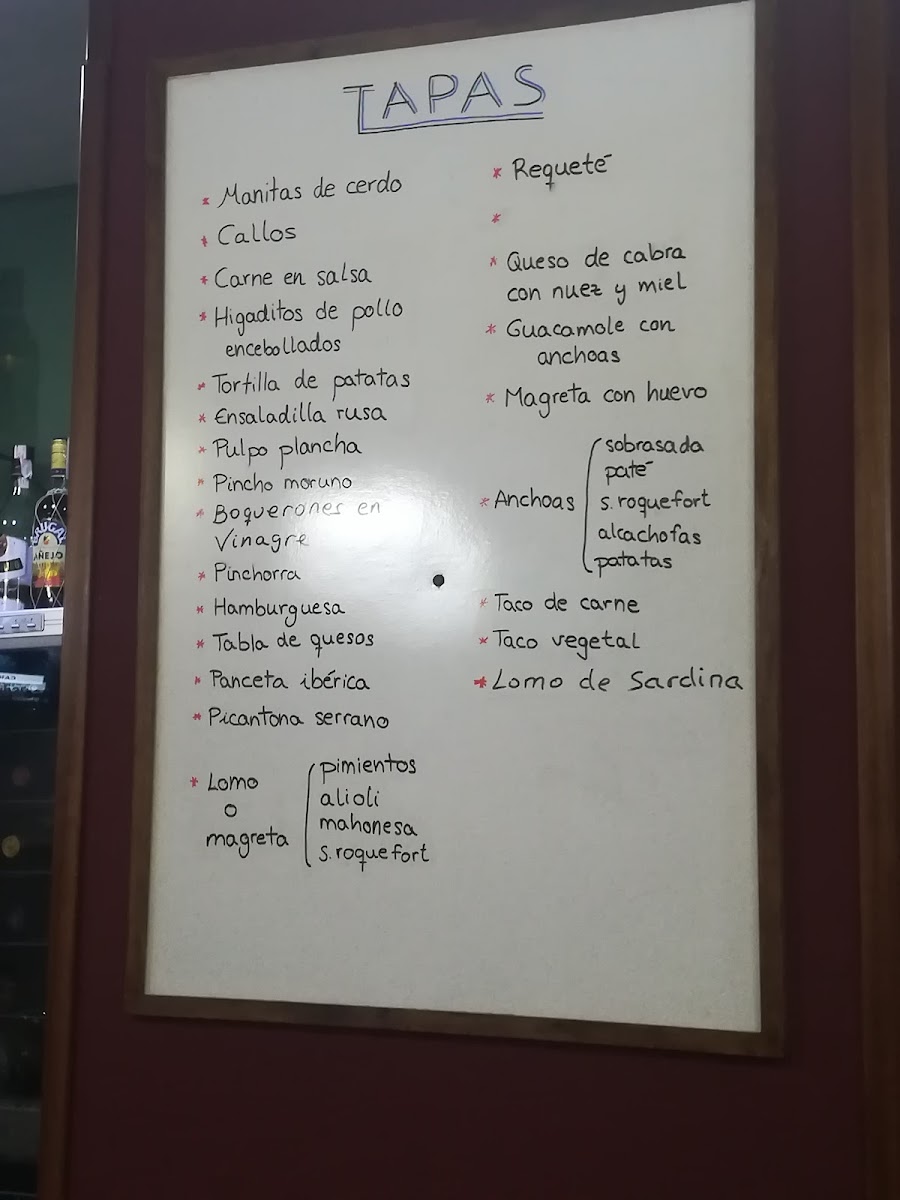 TAPAS
* Manitas de cerdo
* Callos
* Carne en salsa
* Higaditos de pollo
encebollados
* Tortilla de patatas
* Ensaladilla rusa
* Pulpo plancha
* Pincho moruno
* Boquerones en
Vinagre
* Pinchorra
* Hamburguesa
* Tabla de quesos
* Panceta ibérica
* Picantona serrano
* Lomo
o
magreta
pimientos
alioli
mahonesa
s.roquefort
* Requeté
*
* Queso de cabra
con nuez y miel
* Guacamole con
anchoas
* Magreta con huevo
* Anchoas
sobrasada
paté
s.roquefort
alcachofas
patatas
* Taco de carne
* Taco vegetal
* Lomo de Sardina
AÑEJO